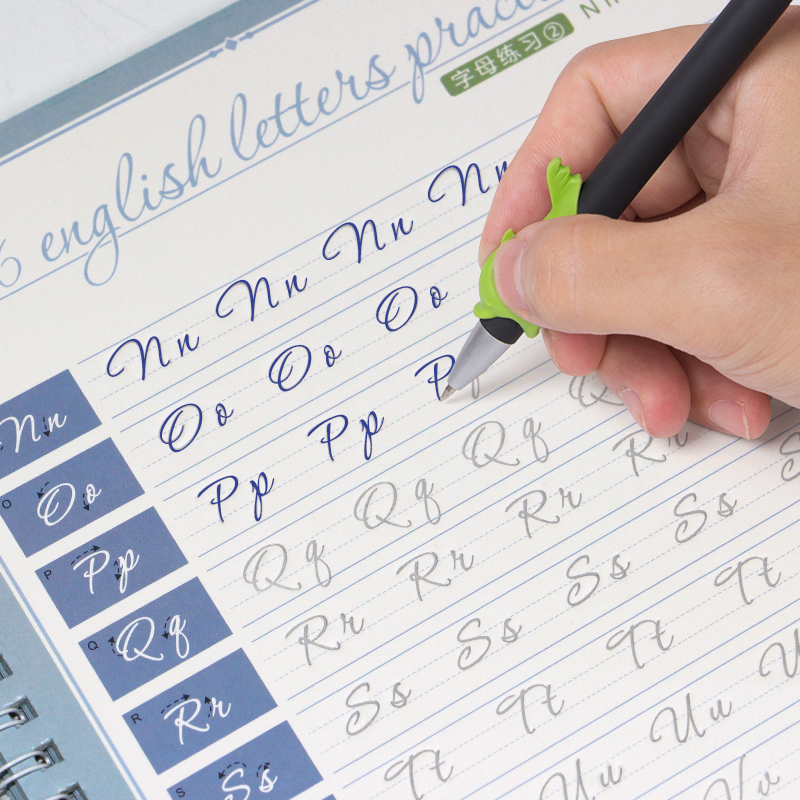 6 english letters
字母练习②
Nn Nn Nn Nn Nn
O Oo Oo Oo Oo
P Pp Pp Pp P
Q Qq Qq Qq Qq
R Rr Rr Rr Rr Rr
S Ss Ss Ss Ss Ss
Tt Tt Tt Tt
Uu Uu